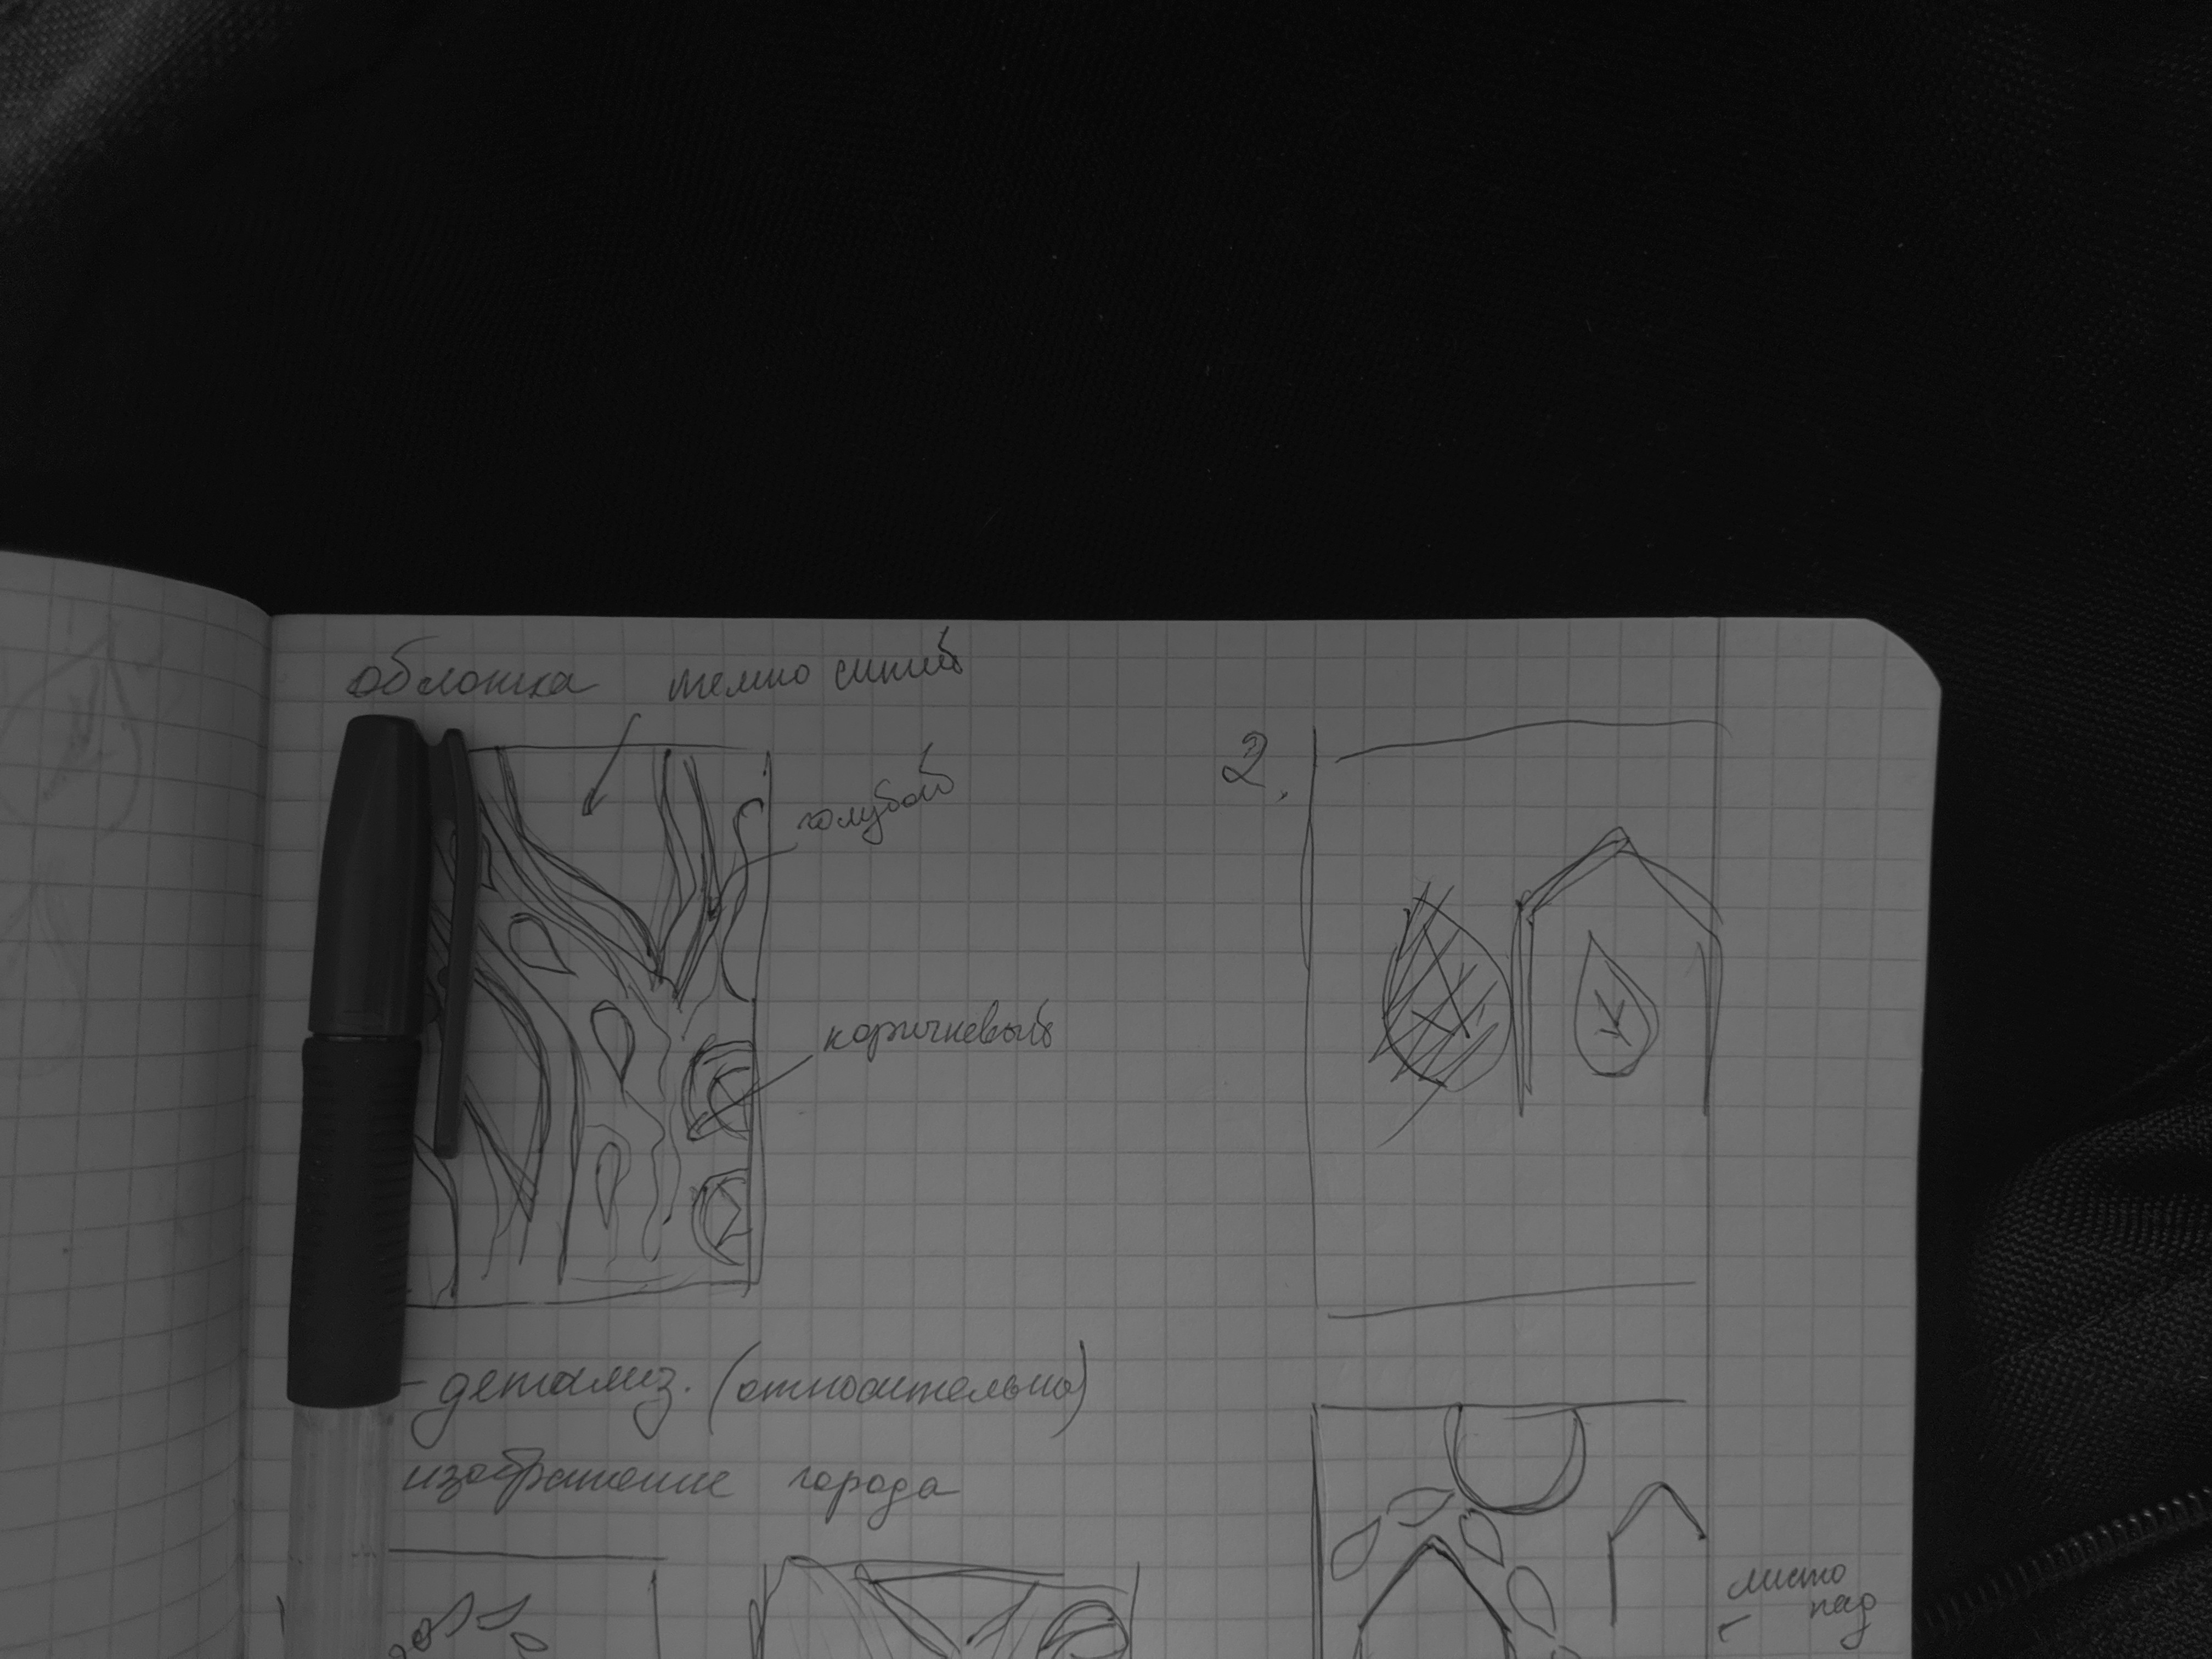 обложка темно синий
2.
голубой
коричневый
- детализ. (относительно)
изображение города
листо
пад